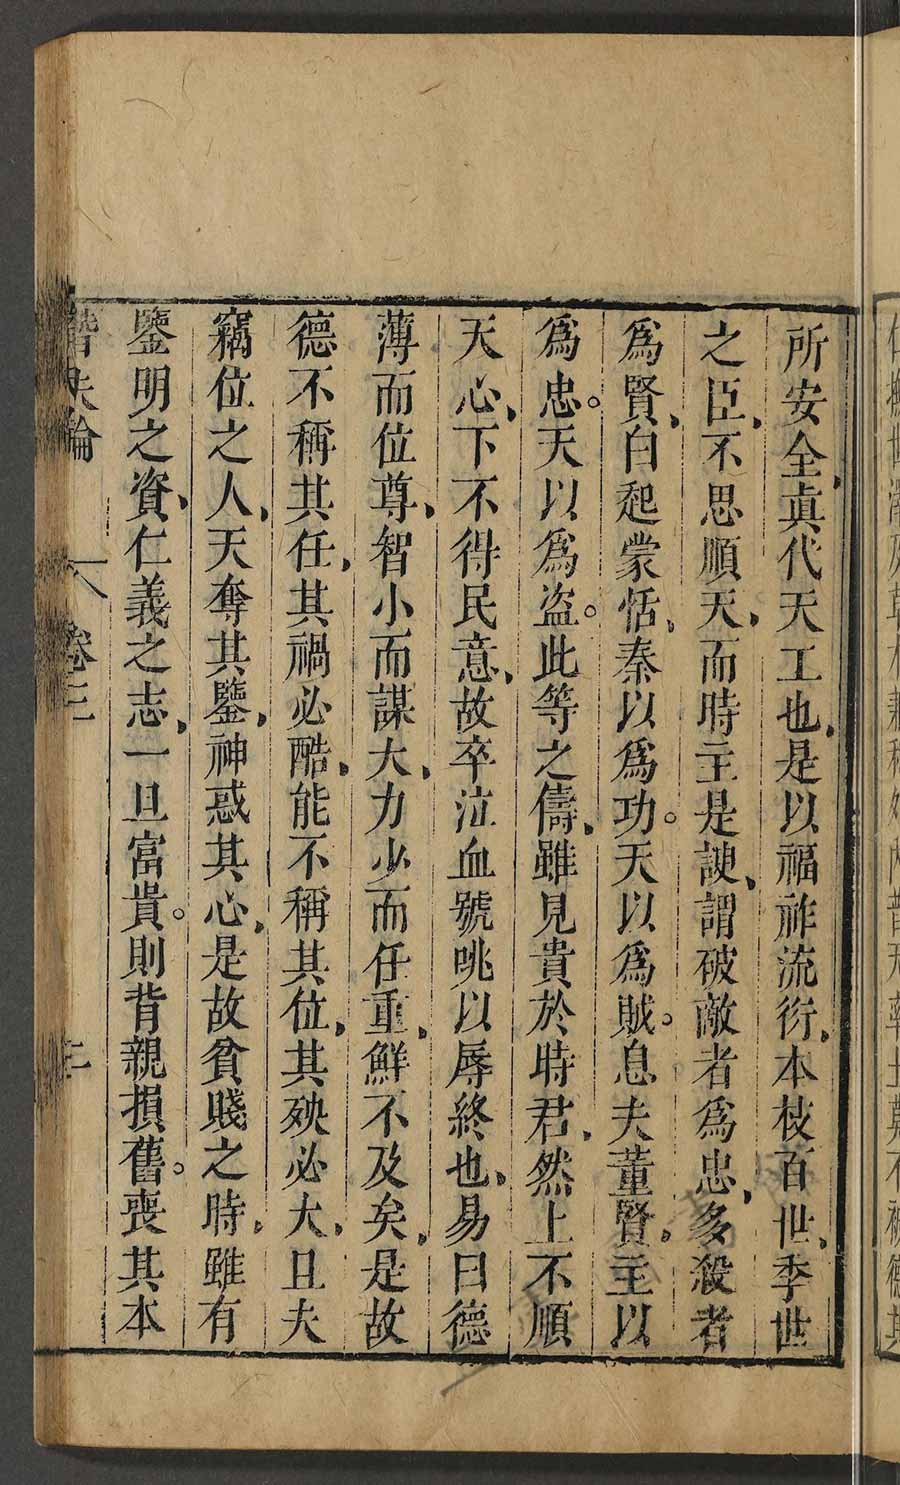 所安全、眞代天工也、是以福祚流衍、本枝百世、季世
之臣、不思順天、而時主是諛、謂破敵者爲忠、多殺者
爲賢、白起蒙恬、秦以爲功。天以爲賊。息夫董賢、主以
爲忠。天以爲盜。此等之儔、雖見貴於時君、然上不順
天心、下不得民意、故卒泣血號咷以辱終也、易曰德
薄而位尊、智小而謀大、力少而任重、鮮不及矣、是故
德不稱其任、其禍必酷、能不稱其位、其殃必大、且夫
竊位之人、天奪其鑒、神惑其心、是故貧賤之時、雖有
鑒明之資、仁義之志、一旦富貴。則背親損舊。喪其本
潛夫論 卷三 三